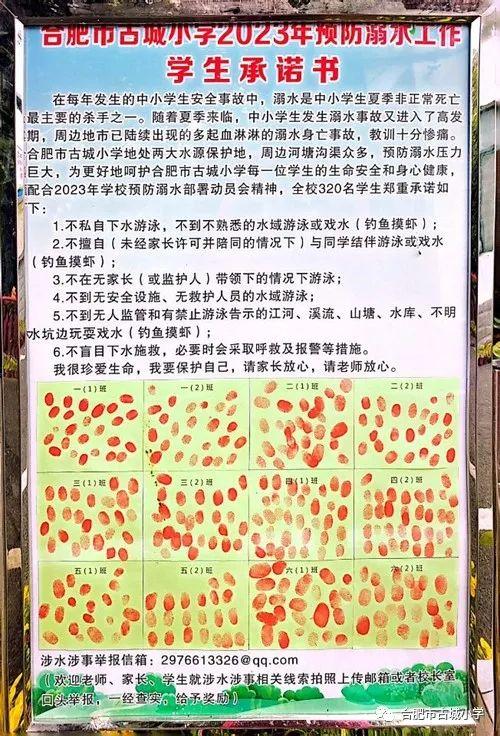 合肥市古城小学2023年预防溺水工作
学生承诺书
在每年发生的中小学生安全事故中，溺水是中小学生夏季非正常死亡
最主要的杀手之一。随着夏季来临，中小学生发生溺水事故又进入了高发
期，周边地市已陆续出现的多起血淋淋的溺水身亡事故，教训十分惨痛。
合肥市古城小学地处两大水源保护地，周边河塘沟渠众多，预防溺水压力
巨大，为更好地呵护合肥市古城小学每一位学生的生命安全和身心健康，
配合2023年学校预防溺水部署动员会精神，全校320名学生郑重承诺如
下：
1.不私自下水游泳，不到不熟悉的水域游泳或戏水（钓鱼摸虾）；
2.不擅自（未经家长许可并陪同的情况下）与同学结伴游泳或戏水
（钓鱼摸虾）；
3.不在无家长（或监护人）带领下的情况下游泳；
4.不到无安全设施、无救护人员的水域游泳；
5.不到无人监管和有禁止游泳告示的江河、溪流、山塘、水库、不明
水坑边玩耍戏水（钓鱼摸虾）；
6.不盲目下水施救，必要时会采取呼救及报警等措施。
我很珍爱生命，我要保护自己，请家长放心，请老师放心。
一(1)班 一(2)班 二(1)班 二(2)班
三(1)班 三(2)班 四(1)班 四(2)班
五(1)班 五(2)班 六(1)班 六(2)班
涉水涉事举报信箱：2976613326@qq.com
（欢迎老师、家长、学生就涉水涉事相关线索拍照上传邮箱或者校长室
口头举报，一经查实，给予奖励）
合肥市古城小学